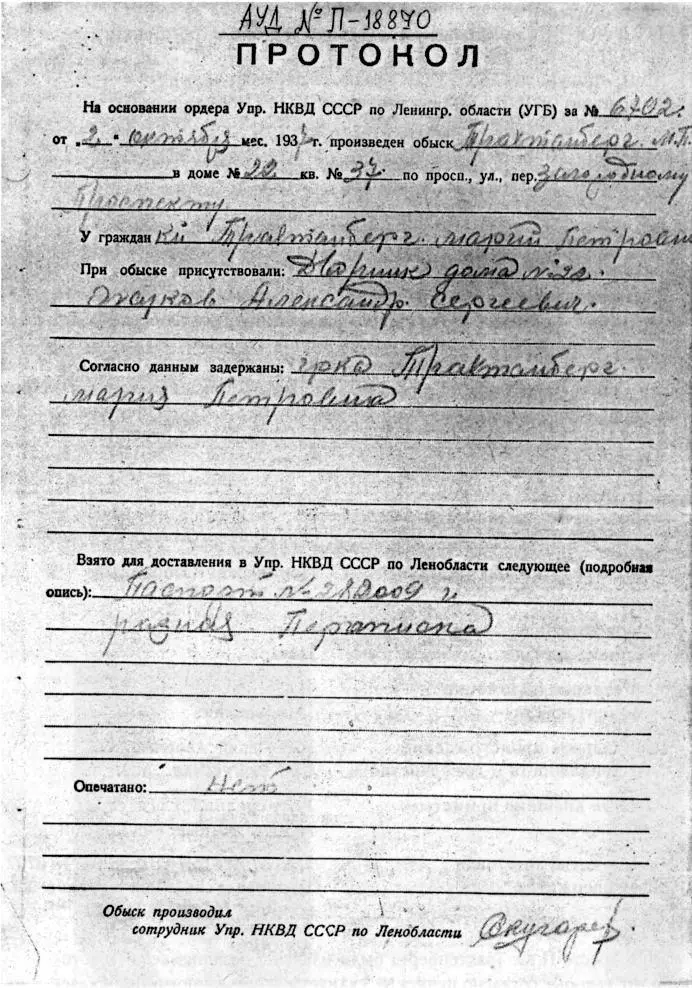 АУД № П-18870
ПРОТОКОЛ
На основании ордера Упр. НКВД СССР по Ленингр. области (УГБ) за № 6702.
от „2“ октября мес. 1937 г. произведен обыск Трактамберг. М.П.
в доме № 22 кв. № 37. по просп., ул., пер. Загородному
Проспекту
У граждан ки Трактамберг. Марии Петровны
При обыске присутствовали: Дворник дома № 22.
Александр. Сергеевич.
Согласно данным задержаны: гр-ка Трактамберг.
Мария Петровна
Взято для доставления в Упр. НКВД СССР по Ленобласти следующее (подробная
опись): Паспорт № и
разная
Опечатано: нет
Обыск производил
сотрудник Упр. НКВД СССР по Ленобласти